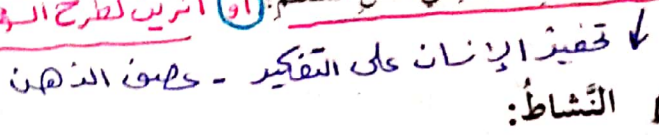 أو أترين لطرح السؤ
تحفيز الإنسان على التفكير - عصف الذهن
النَّشاطُ: